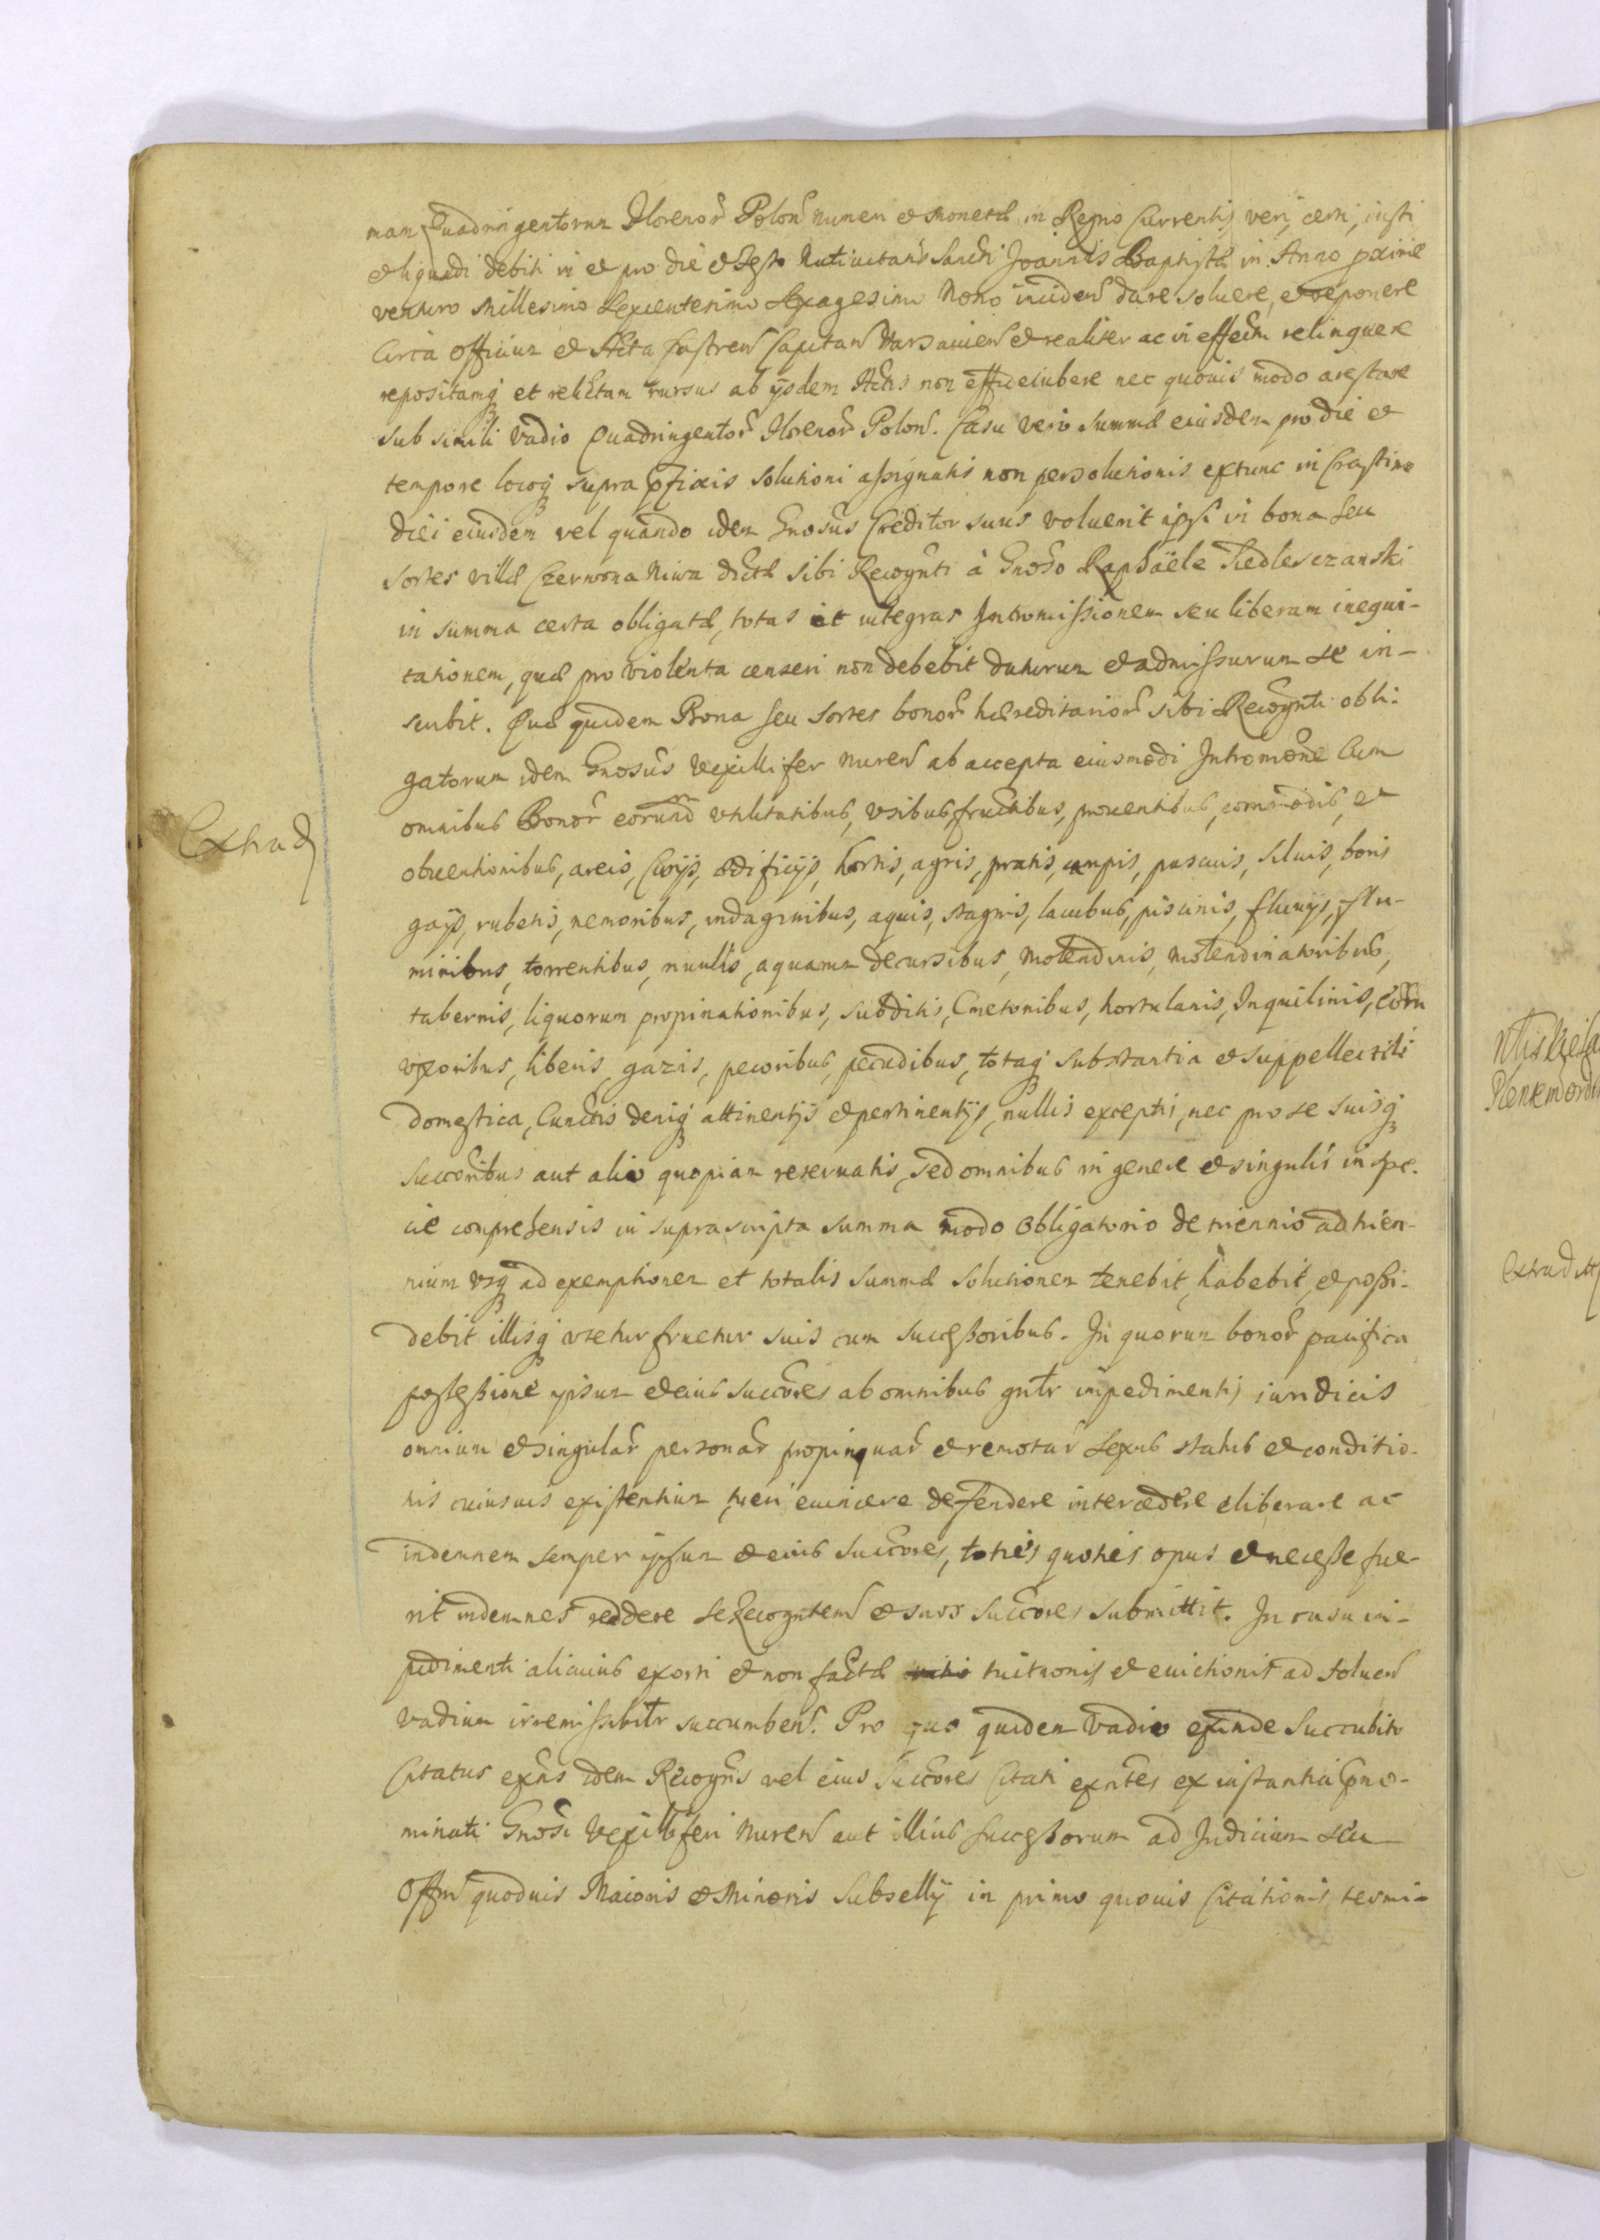 mam Quadringentorum Florenor Polon numeri et monetæ in Regno Currentis veri, certi, iusti
et liquidi debiti in et pro die et festo Nativitatis Sancti Joannis Baptistæ in Anno proxime
venturo Millesimo Sexcentesimo Sexagesimo Nono inciden dare soluere, et reponere
Circa Officium et Acta Castren Capitan Varsauien et realiter ac in effectu relinquere
repositamq et relictam rursus ab ijsdem Actis non
nec quouis modo arestare
sub simili vadio Quadringentor Florenor Polon. Casu vero summæ eiusdem pro die et
tempore locoq supra præfixis solutioni assignatis non persolutionis extunc in Crastino
diei eiusdem vel quando idem Gnosus Creditor suus voluerit ipsi in bona seu
sortes villæ Czerwona Niwa dictæ sibi Recognti à Gnoso Raphaële Siedlesczanski
in summa certa obligatæ, totas et integras Intromissionem seu liberam inequi-
tationem, quæ pro violenta censeri non debebit daturum et admissurum se in-
scribit. Quæ quidem Bona seu sortes bonor hæreditarior sibi Recognti obli-
gatorum idem Gnosus Vexillifer Nuren ab accepta eiusmodi Intromone Cum
omnibus Bonor eorund vtilitatibus, vsibus, fructibus, prouentibus, commodis, et
Extrad
obuentionibus, areis, Curijs, ædificijs, hortis, agris, pratis, campis, pascuis, siluis, boris
gaijs, rubetis, nemoribus, indaginibus, aquis, stagnis, lacubus, piscinis, fluuijs, flu-
minibus, torrentibus, riuulis, aquarum decursibus, Molendinis, Molendinatoribus,
tabernis, liquorum propinationibus, subditis, Cmetonibus, hortulanis, Inquilinis, eoru
vxoribus, liberis, gazis, pecoribus, pecudibus, totaq substantia et suppellectili
domestica, Cunctis deniq attinentijs et pertinentijs, nullis exceptis, nec pro se suisq
succoribus aut alio quopiam reseruatis, sed omnibus in genere et singulis in spe-
cie comprehensis in suprascripta summa modo Obligatorio de triennio ad trien-
nium vsq ad exemptionem et totalis summæ solutionem tenebit, habebit, et possi-
debit illisq vtetur fruetur suis cum successoribus. In quorum bonor pacifica
possessione ipsum et eius succores ab omnibus gntr impedimentis iuridicis
omnium et singular personar propinquar et remotar sexus status et conditio-
nis cuiusuis existentium tueri euincere defendere intercedere eliberare ac
indemnem semper ipsum et eius succores, toties quoties opus et necesse fue-
rit indemnes reddere se Recogntem et suos succores submittit. In casu im-
pedimenti alicuius exorti et non factæ tuitionis et euictionis ad soluen
vadium irremissibiltr succumben. Pro quo quidem vadio exinde succubito
Citatus exns idem Recogns vel eius succores Citati exntes ex instantia præno-
minati Gnosi Vexilliferi Nuren aut illius successorum ad Iudicium seu
Offm quoduis Maioris et Minoris Subsellij in primo quouis Citationis termi-